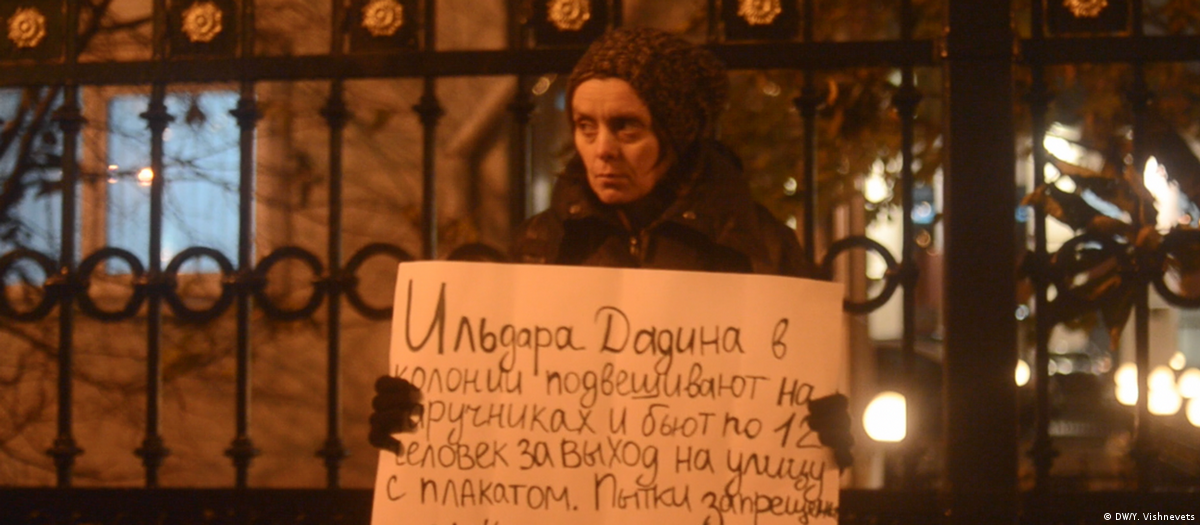 Ильдара Дадина в
колонии подвешивают на
наручниках и бьют по 12
человек за выход на улицу
с плакатом. Пытки запрещены
© DW/Y. Vishnevets